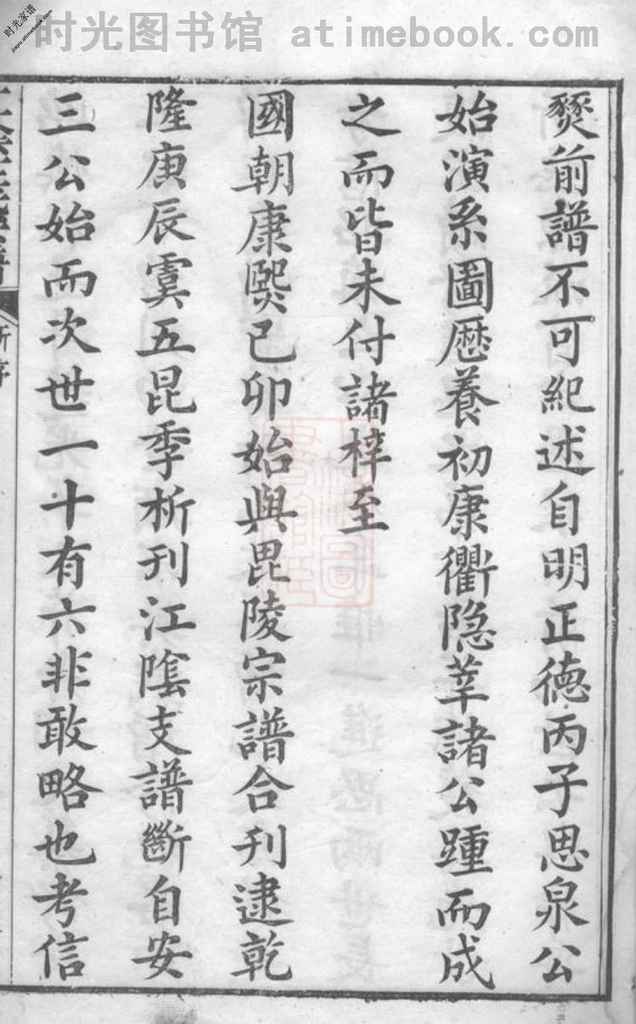 时光图书馆 atimebook.com
时光家谱
燹前譜不可紀述自明正德丙子思泉公
始演系圖歷養初康衢隐莘諸公踵而成
之而皆未付諸梓至
國朝康熙己卯始與毘陵宗譜合刊逮乾
隆庚辰寞五昆季析刊江陰支譜斷自安
三公始而次世一十有六非敢略也考信